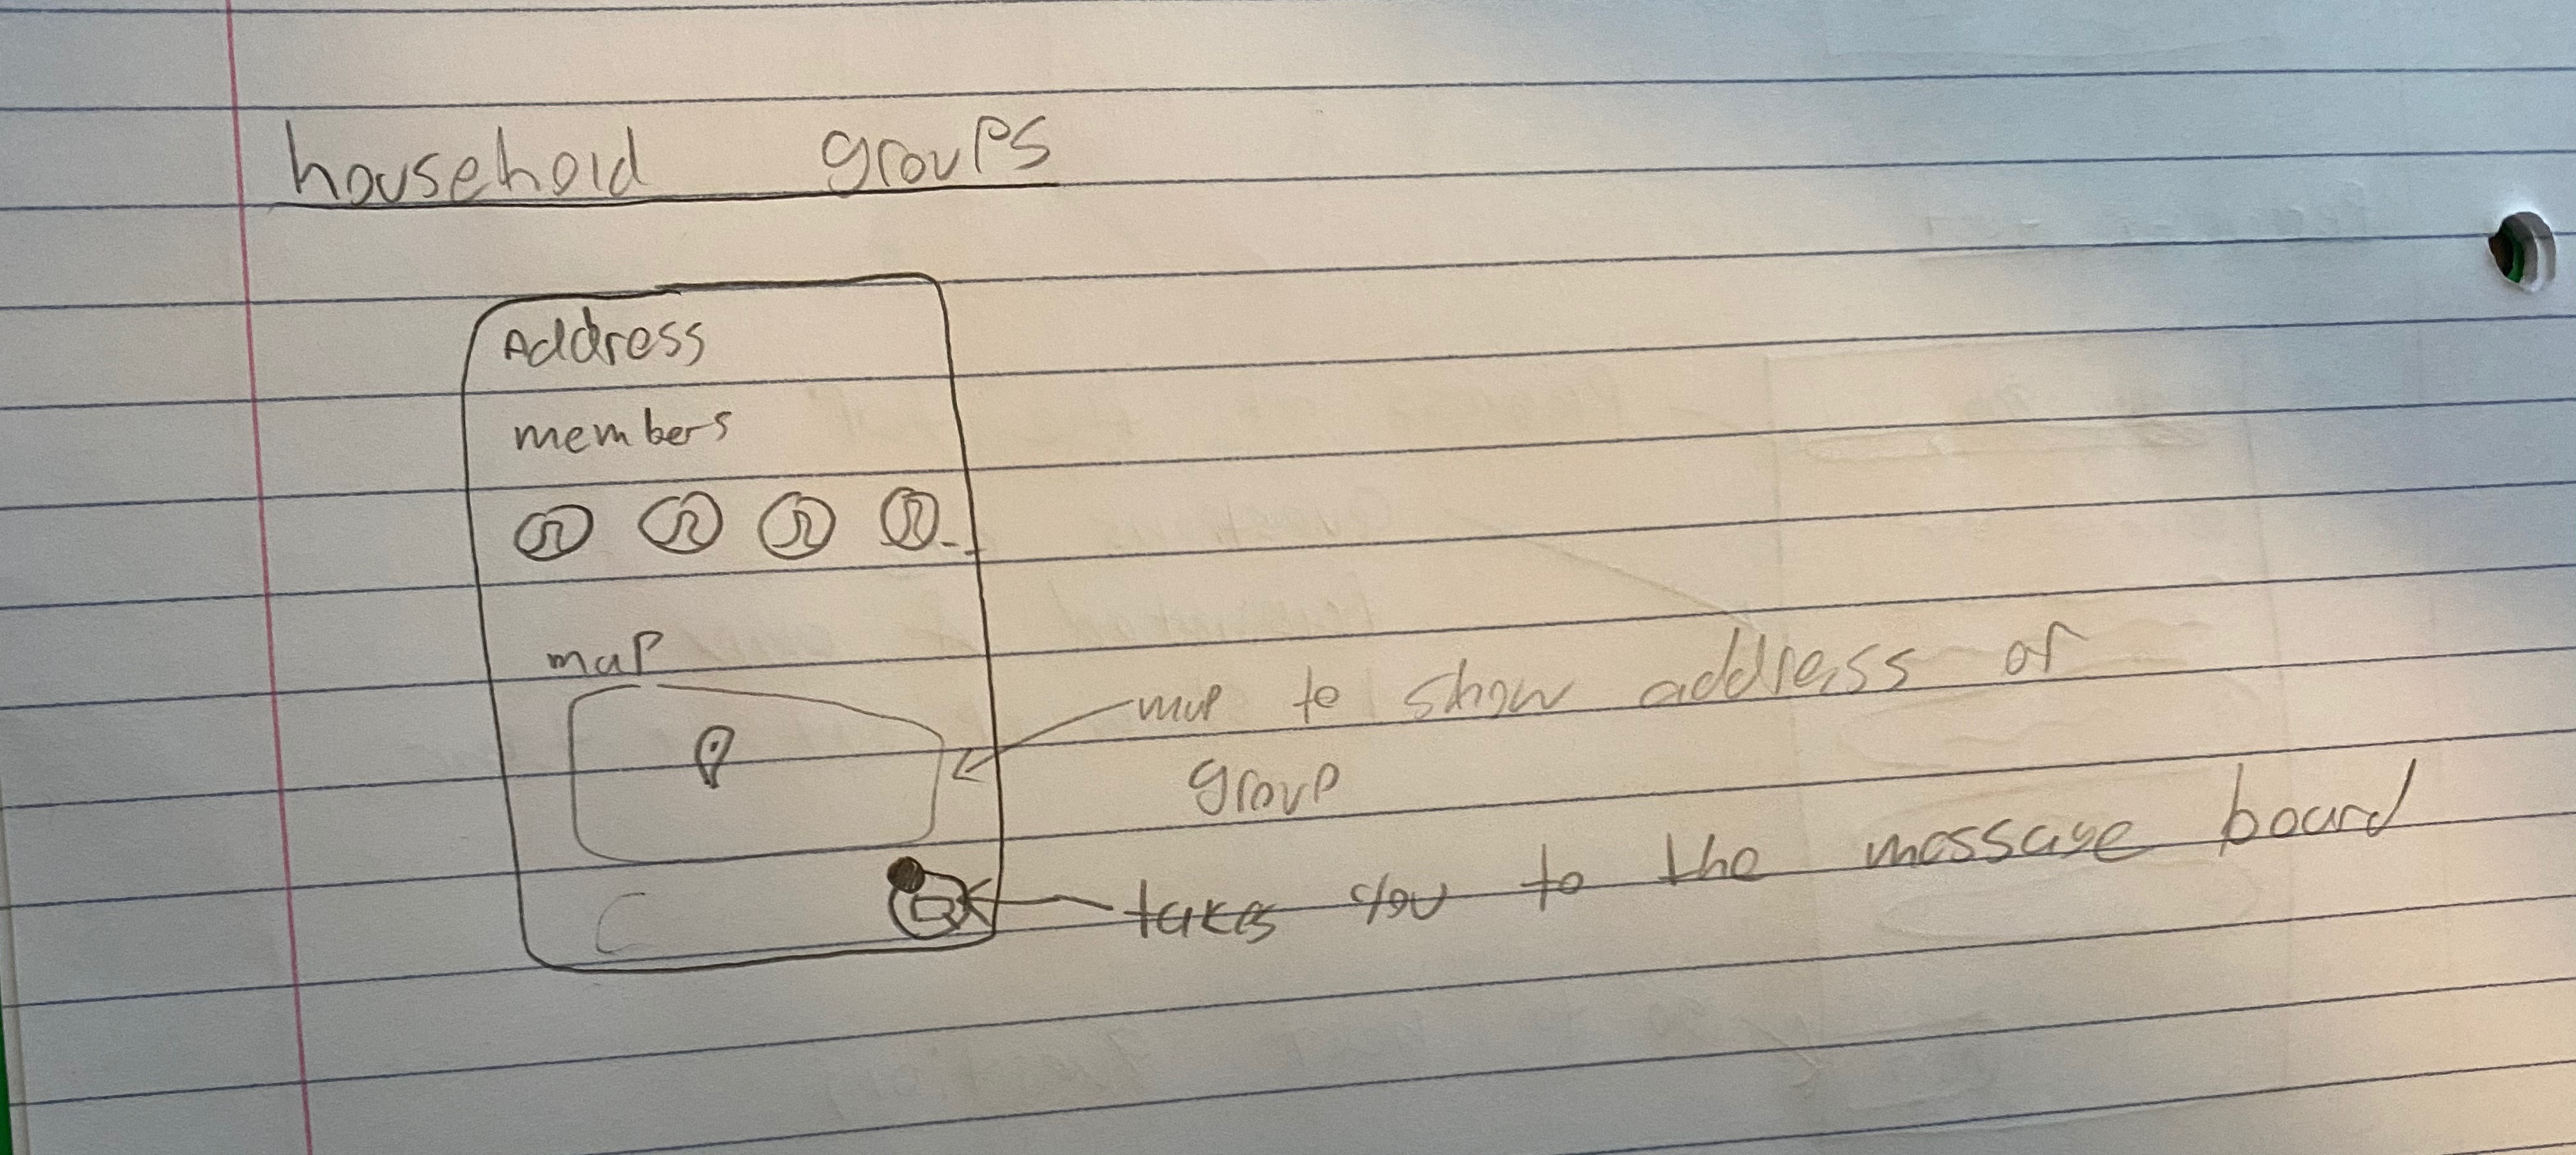 household groups
Address
members
map
map to show address of
group
takes you to the message board